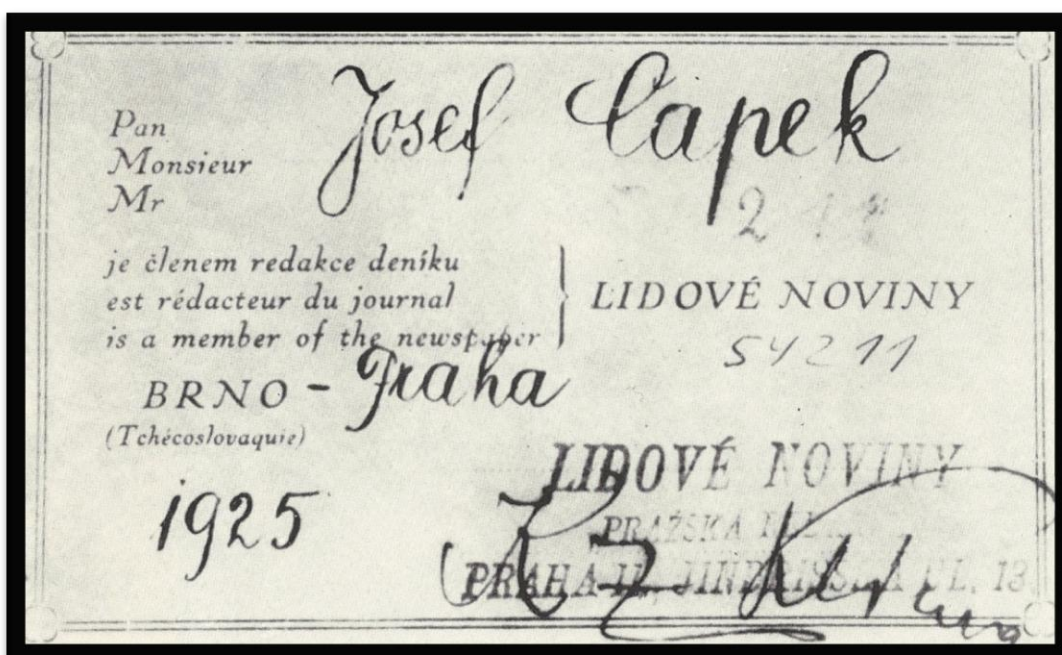 Pan
Monsieur
Mr
Josef Čapek
je členem redakce deníku
est rédacteur du journal
is a member of the newspaper
LIDOVÉ NOVINY
54211
BRNO - Praha
(Tchécoslovaquie)
1925
LIDOVÉ NOVINY
PRAŽSKÁ
PRAHA-II, JINDŘIŠSKÁ UL. 13